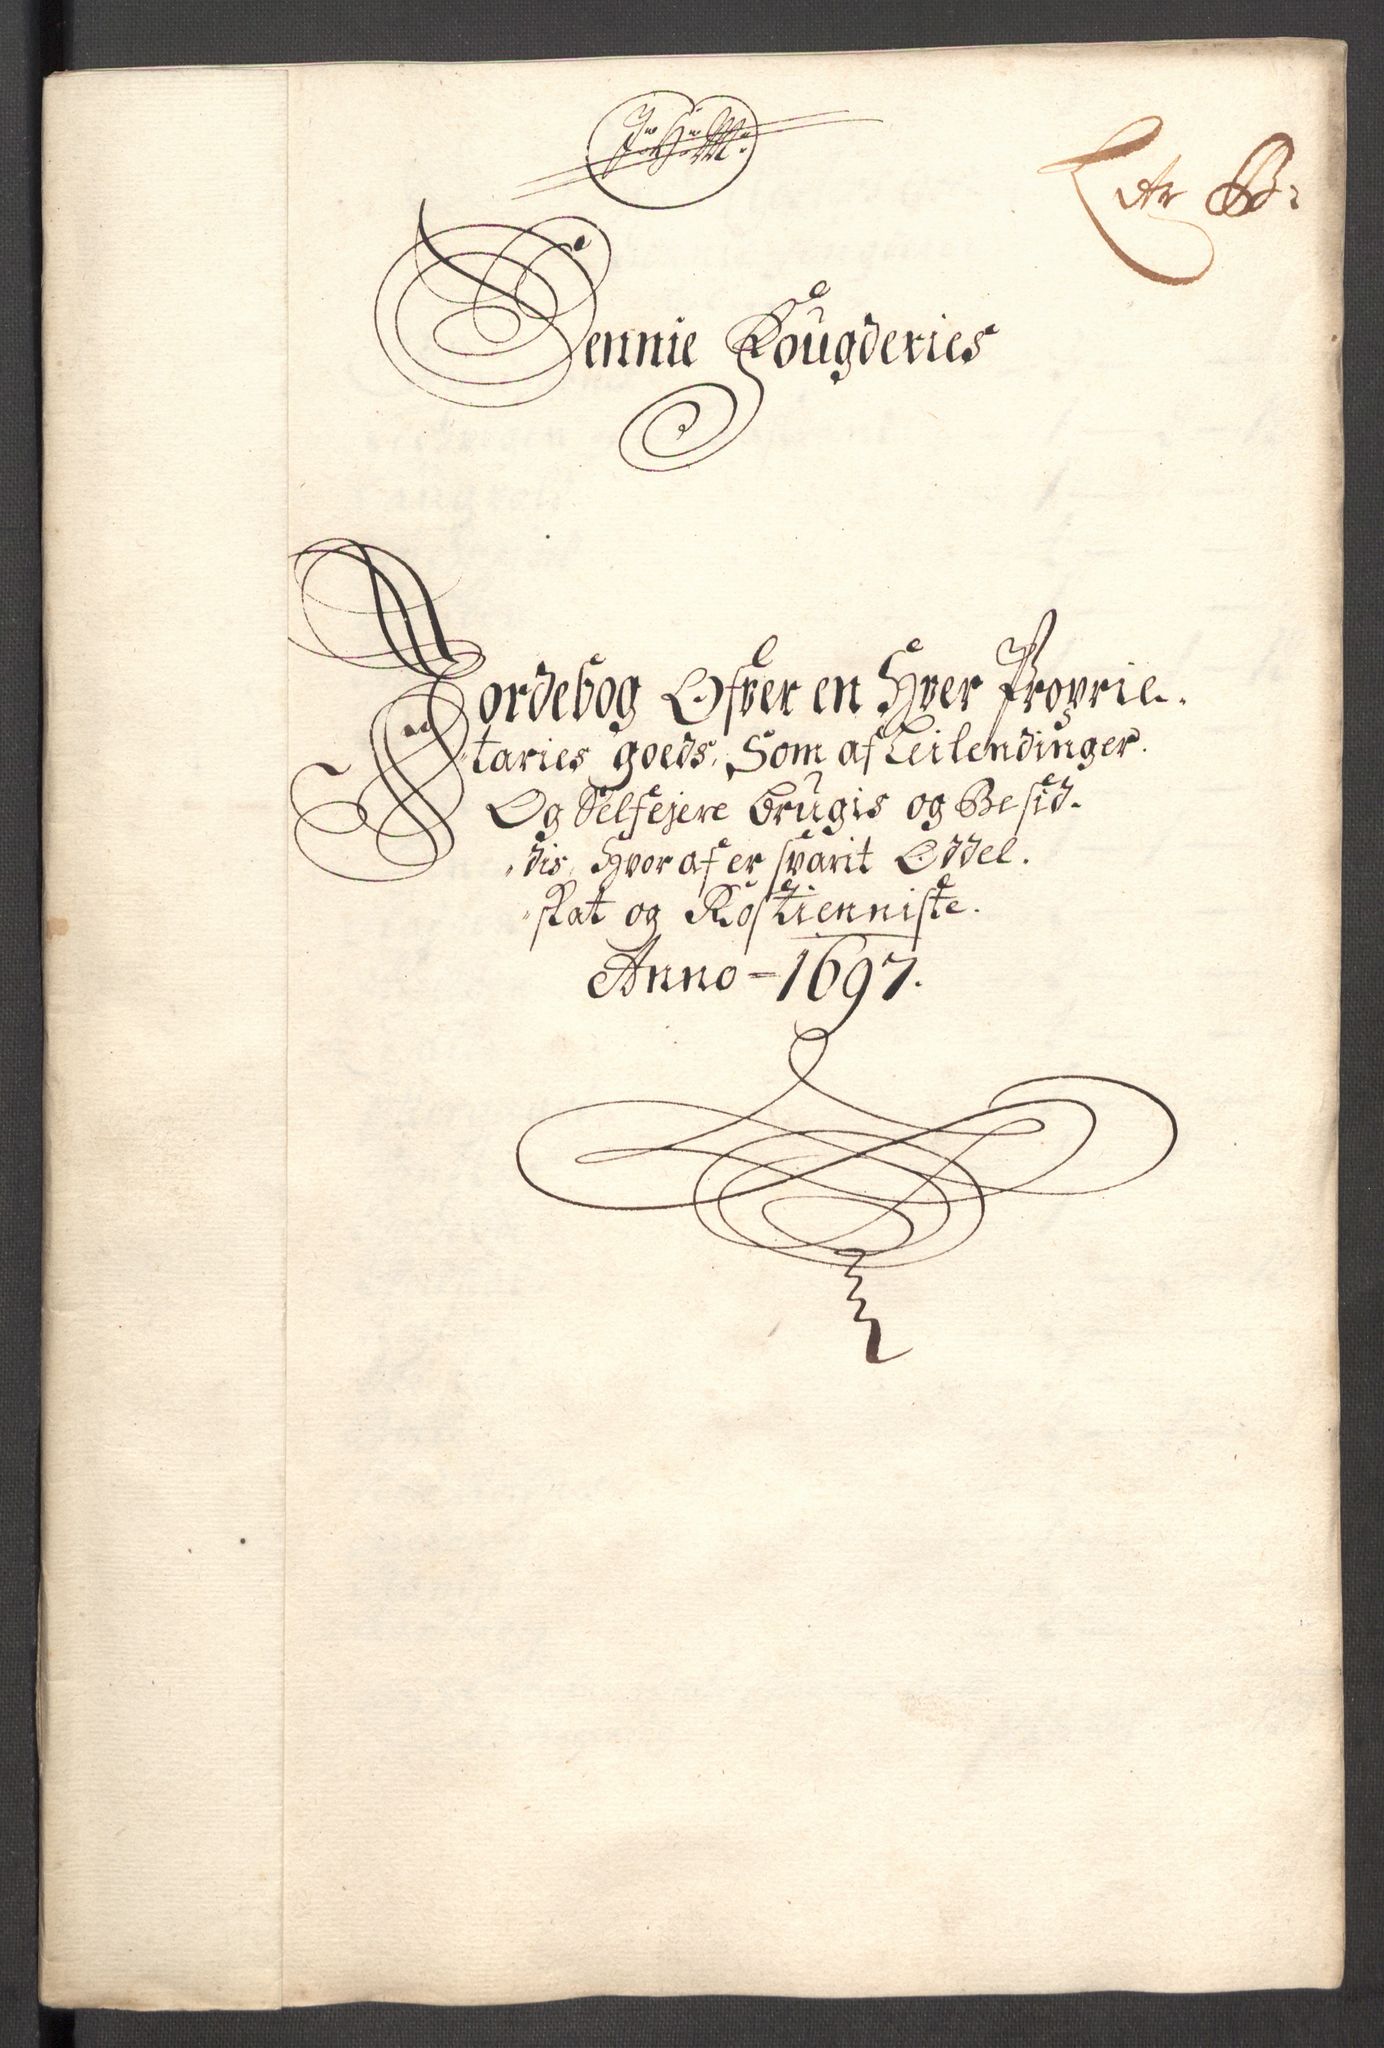 J: H: M:
Litr B:
Sennie Fougderies
Jordebog Ofver en Hver Proprie-
taries goeds, Som af Leilendinger
Og Selfejere brugis og Besid-
dis, Hvor af er svarit Oddel-
skat og Rostienniste.
Anno - 1697.